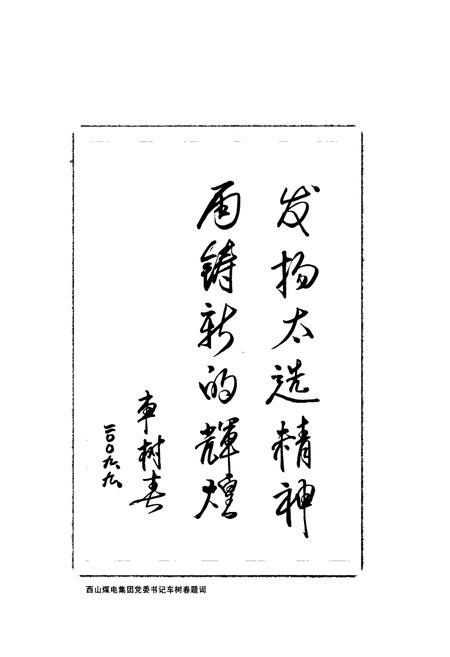 发扬太选精神
再铸新的辉煌
车树春
二〇〇九.九.
西山煤电集团党委书记车树春题词